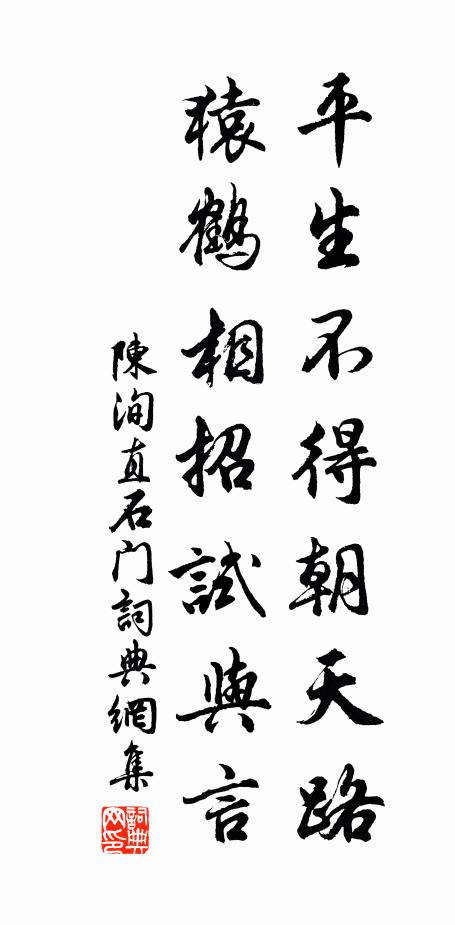 平生不得朝天路
猿鶴相招試與言
陳洵直石门詞典網集
詞典网印